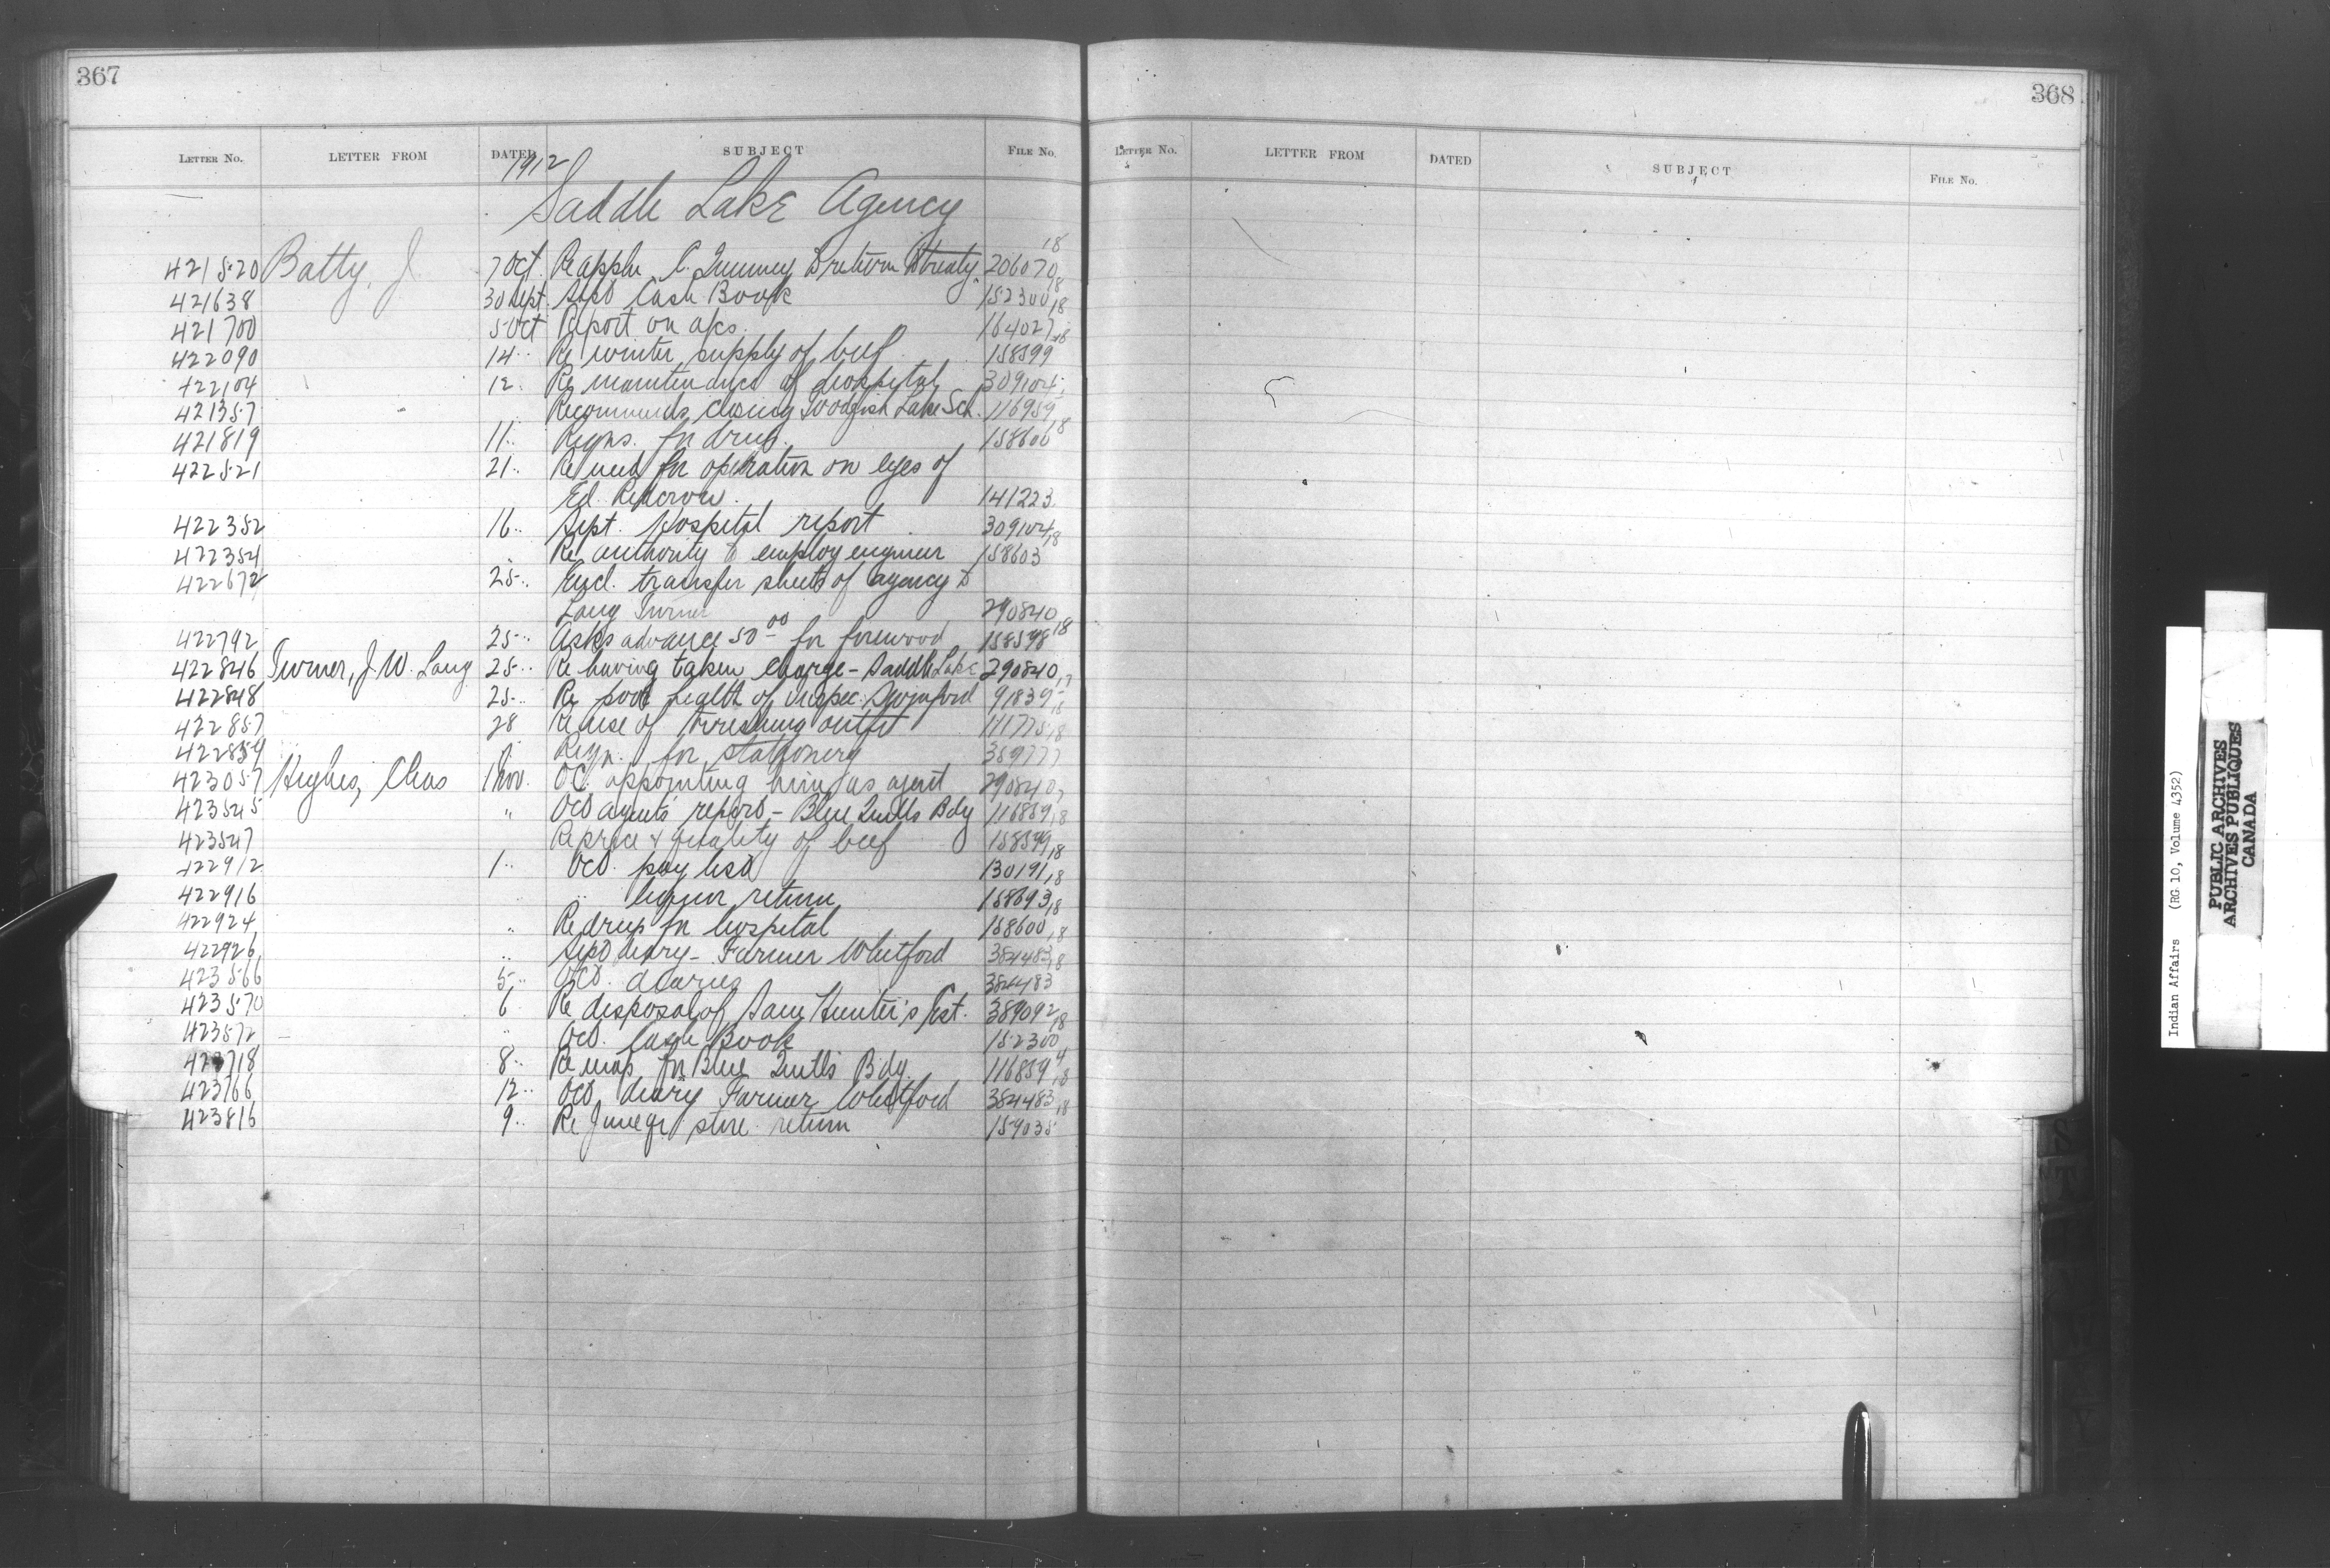 367
LETTER NO. LETTER FROM DATED SUBJECT FILE NO.
1912
Saddle Lake Agency
421520 Batty, J 7 Oct. Re applic C. Quinney to return to treaty 206070 18
421638 30 Sept. Sept Cash Book 152300 18
421700 5 Oct Report on a/cs. 164027 18
422090 14 " Re winter supply of beef 158599 18
422104 12 " Re maintenance of hospital 309104
421357 Recommends closing Goodfish Lake Sch. 116959
421819 11 " Reqns. for drugs. 158600 18
422521 21 " Re need for operation on eyes of
Ed. Redcrow. 141223
422352 16 " Sept. Hospital report 309104 18
422354 " Re authority to employ engineer 158603
422672 25 " Encl. transfer sheets of agency to
Lang Turner 290840
422792 25 " Asks advance 50.00 for firewood 158598 18
422846 Turner, J. W. Lang 25 " Re having taken charge - Saddle Lake 290840
422848 25 " Re poor health of Inspec. Swinford 91839
422857 28 Re use of threshing outfit 18
422859 " Reqn. for stationery 389777
423057 Hughes, Chas 1 Nov. OC. appointing him as agent 290840
423545 " Oct agent's report - Blue Quills Bdg 116859 18
423547 Re price & quality of beef 158599 18
422912 1 " Oct. pay list 130191 18
422916 " " liquor return 158693 18
422924 " Re drugs for hospital 158600 18
422926 " Sept diary - Farmer Whitford 384483 18
423566 5 " Oct. diaries 384483
423570 6 Re disposal of Sam Hunter's Est. 389092 18
423572 " Oct. Cash Book 152300
423718 8 " Re map for Blue Quills Bdg. 116859 18
423766 12 " Oct diary Farmer Whitford 384483 18
423816 9 " Re June qr store return 159035
368
LETTER NO. LETTER FROM DATED SUBJECT FILE NO.
Indian Affairs (RG 10, Volume 4352)
PUBLIC ARCHIVES
ARCHIVES PUBLIQUES
CANADA